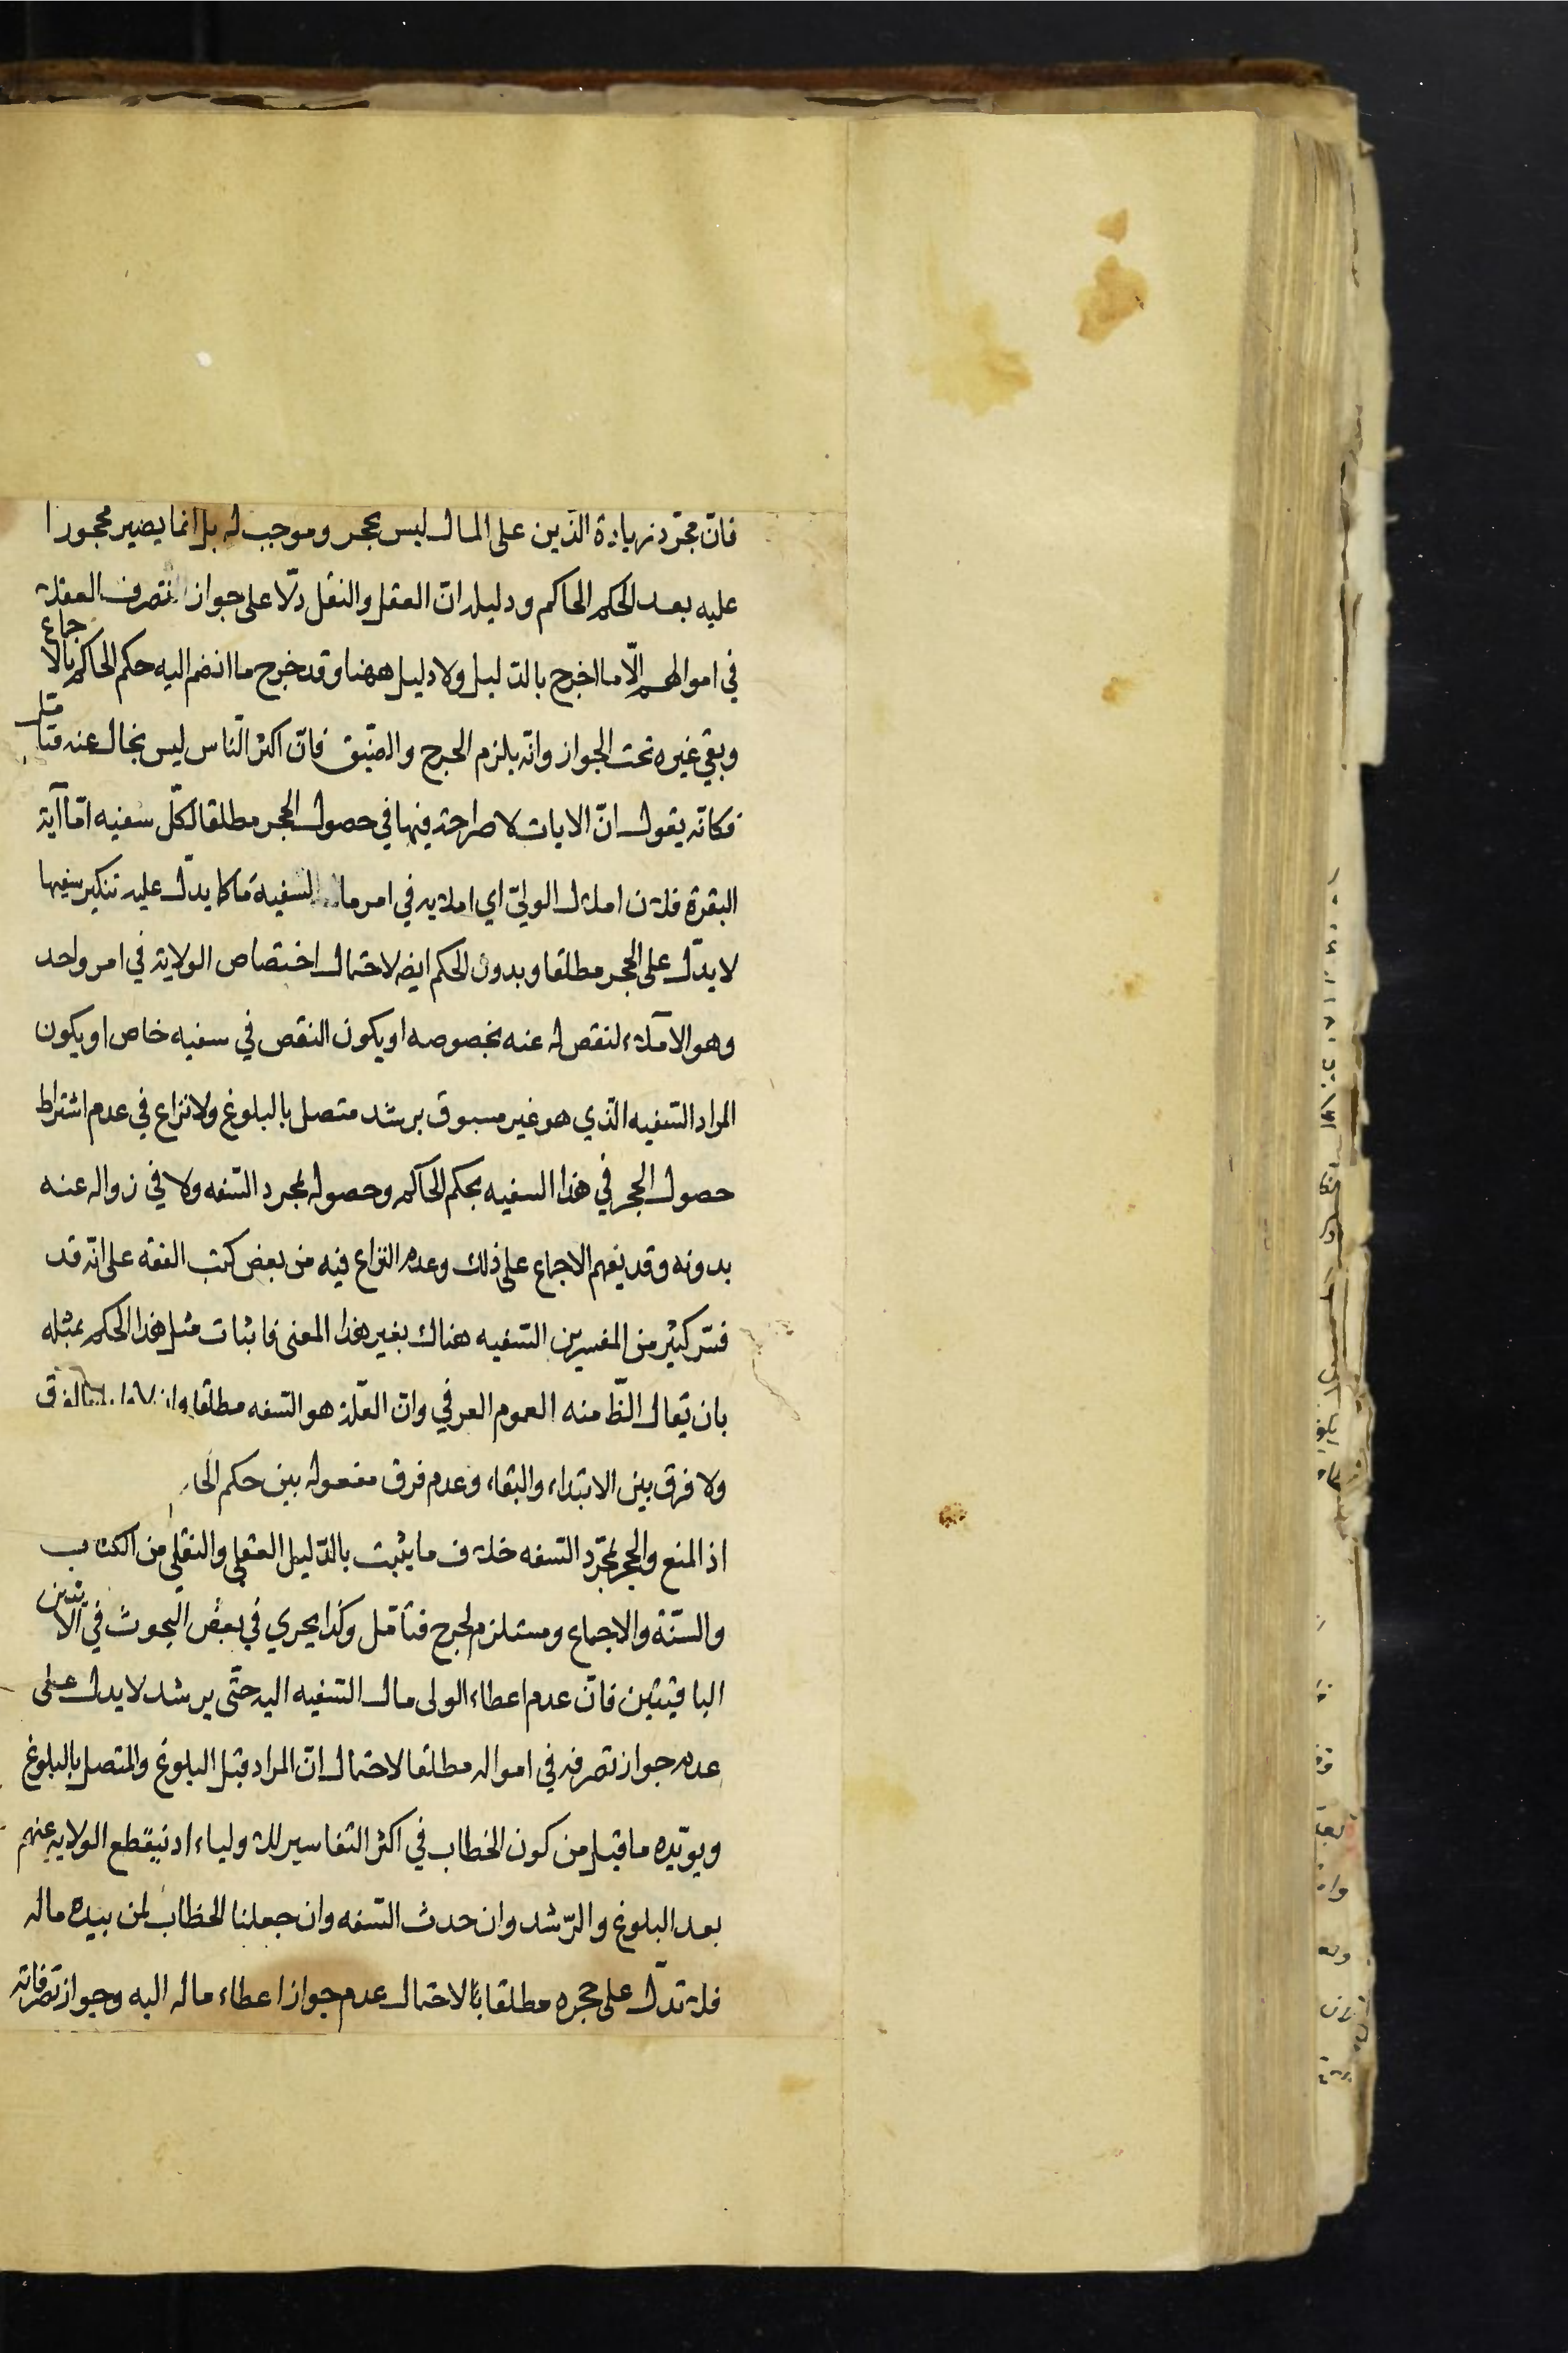 فانّ مجرّد زيادة الدّين على المال ليس بحجر وموجب له بل انما يصير محجورا
عليه بعد الحكم الحاكم ودليله انّ العقل والنقل دلّا على جواز التصرف العقلاء
في اموالهم الّا ما اخرج بالدليل ولا دليل ههنا وقد خرج ما انضم اليه حكم الحاكم بالاجماع
وبقي غيره تحت الجواز وانّه يلزم الحرج والضيق فانّ اكثر الناس ليس بخال عنه فتأمل
فكانّه يقول انّ الايات لا صراحة فيها في حصول الحجر مطلقا لكلّ سفيه امّا آية
البقرة فلان املال الوليّ اي املائه في امر مال السفيه ما كا يدلّ عليه تنكير سفيها
لا يدلّ على الحجر مطلقا وبدون الحكم ايض لاحتمال اختصاص الولاية في امر واحد
وهو الاملاء لنقص له عنه بخصوصه او يكون النقص في سفيه خاص او يكون
المراد السّفيه الّذي هو غير مسبوق برشد متصل بالبلوغ ولا نزاع في عدم اشتراط
حصول الحجر في هذا السفيه بحكم الحاكم وحصوله بمجرد السّفه ولا في زواله عنه
بدونه وقد يفهم الاجماع على ذلك وعدم النزاع فيه من بعض كتب الفقه على انّه قد
فسّر كثير من المفسرين السّفيه هناك بغير هذا المعنى فاثبات مثل هذا الحكم بمثله
بان يقال الظّ منه العموم العرفي وانّ العلّة هو السّفه مطلقا وان بالفرق
ولا فرق بين الابتداء والبقاء وعدم فرق مفعوله بين حكم
اذ المنع والحجر بمجرّد السّفه خلاف ما يثبت بالدّليل العقلي والنقلي من الكتاب
والسّنّة والاجماع ومستلزم لحرج فتأمّل وكذا يجري في بعض البحوث في الآيتين
الباقيتين فانّ عدم اعطاء الولى مال السّفيه اليه حتّى يرشد لا يدل على
عدم جواز تصرفه في امواله مطلقا لاحتمال انّ المراد قبل البلوغ والمتصل بالبلوغ
ويؤيّده ما قيل من كون الخطاب في اكثر التفاسير للاولياء اذ ينقطع الولاية عنهم
بعد البلوغ والرّشد وان حدث السّفه وان جعلنا الخطاب لمن بيده ماله
فلا تدلّ على حجره مطلقا بالاحتمال عدم جواز اعطاء ماله اليه وجواز تصرفاته